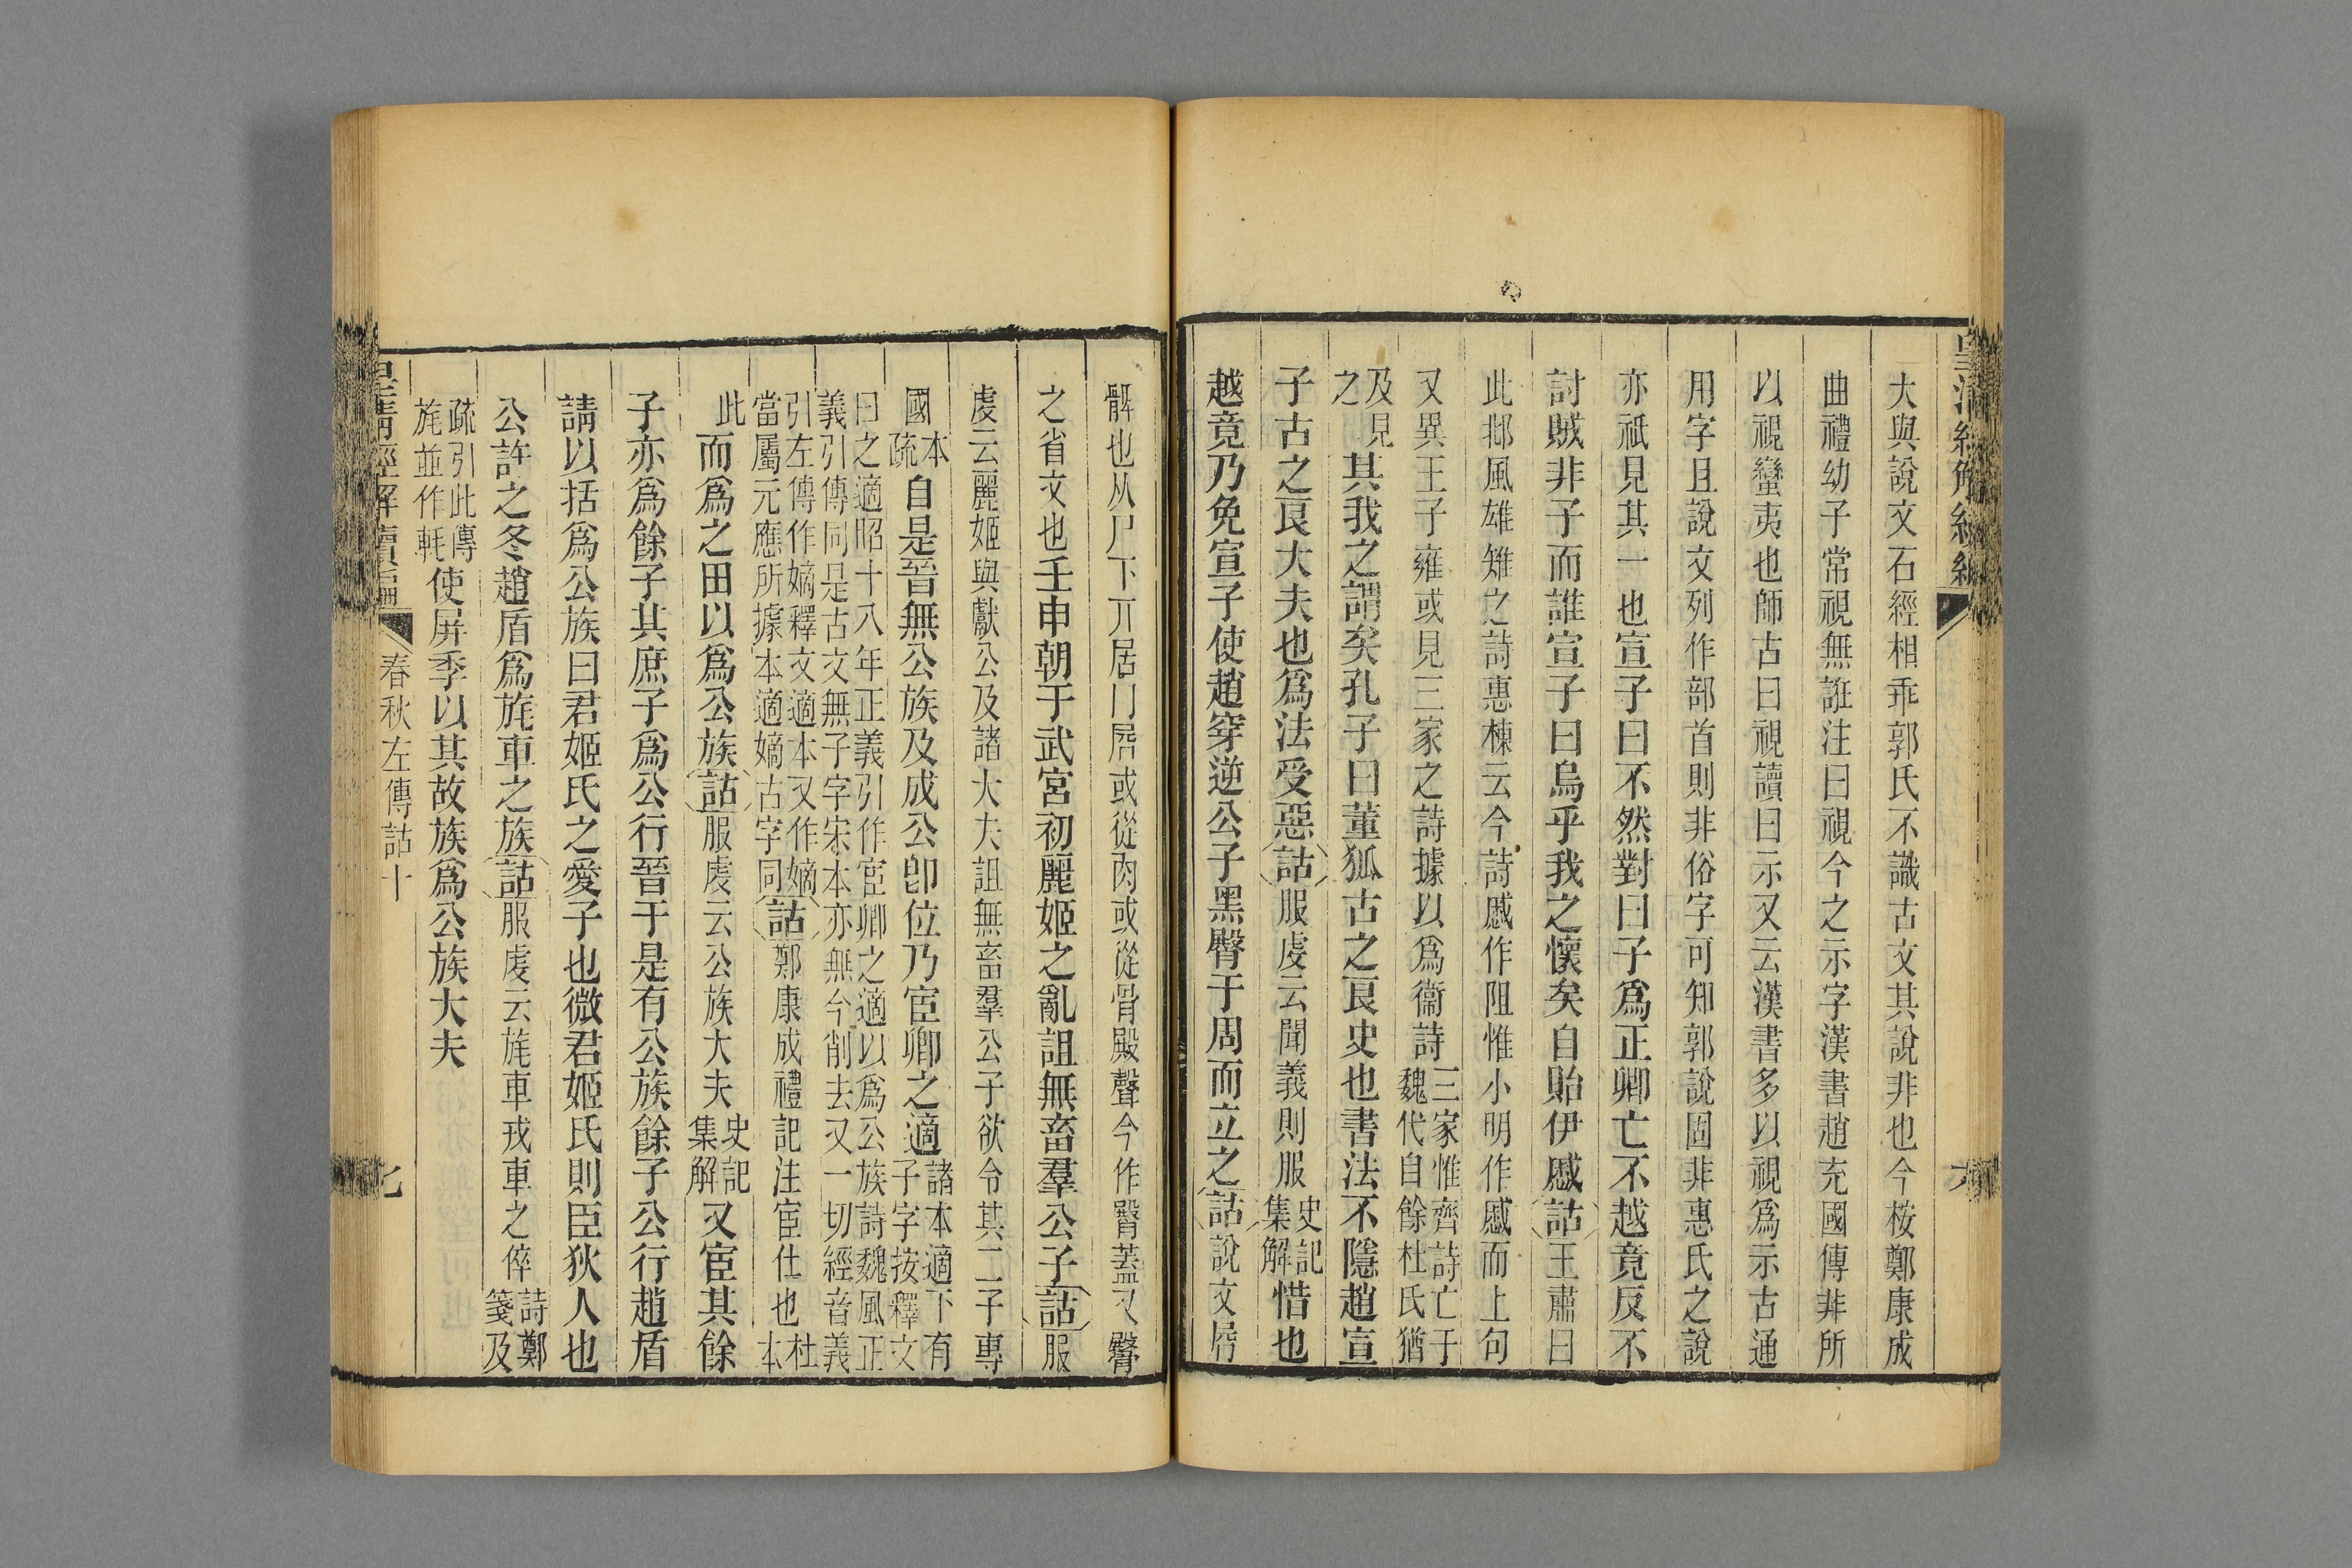 大與說文石經相乖郭氏不識古文其說非也今桉鄭康成
曲禮幼子常視無誑注曰視今之示字漢書趙充國傳非所
以視蠻夷也師古曰視讀曰示又云漢書多以視爲示古通
用字且說文列作部首則非俗字可知郭說固非惠氏之說
亦祇見其一也宣子曰不然對曰子爲正卿亡不越竟反不
討賊非子而誰宣子曰烏乎我之懷矣自貽伊慼詁王肅曰
此邶風雄雉之詩惠棟云今詩慼作阻惟小明作慼而上句
又異王子雍或見三家之詩據以爲衞詩三家惟齊詩亡于魏代自餘杜氏猶
及見之其我之謂矣孔子曰董狐古之良史也書法不隱趙宣
子古之良大夫也爲法受惡詁服虔云聞義則服史記集解惜也
越竟乃免宣子使趙穿逆公子黑臀于周而立之詁說文㞐
髀也从尸下丌居几㞐或從肉或從骨殿聲今作臀蓋又臋
之省文也壬申朝于武宮初麗姬之亂詛無畜羣公子詁服
虔云麗姬與獻公及諸大夫詛無畜羣公子欲令其二子專
國本疏自是晉無公族及成公卽位乃宦卿之適諸本適下有子字按釋文
曰之適昭十八年正義引作宦卿之適以爲公族詩魏風正義引傳同是古文無子字宋本亦無今削去又一切經音義
引左傳作嫡釋文適本又作嫡當屬元應所據本適嫡古字同詁鄭康成禮記注宦仕也杜本
此而爲之田以爲公族詁服虔云公族大夫史記集解又宦其餘
子亦爲餘子其庶子爲公行晉于是有公族餘子公行趙盾
請以括爲公族曰君姬氏之愛子也微君姬氏則臣狄人也
公許之冬趙盾爲旄車之族詁服虔云旄車戎車之倅詩鄭箋及
疏引此傳旄並作軞使屏季以其故族爲公族大夫
春秋左傳詁十